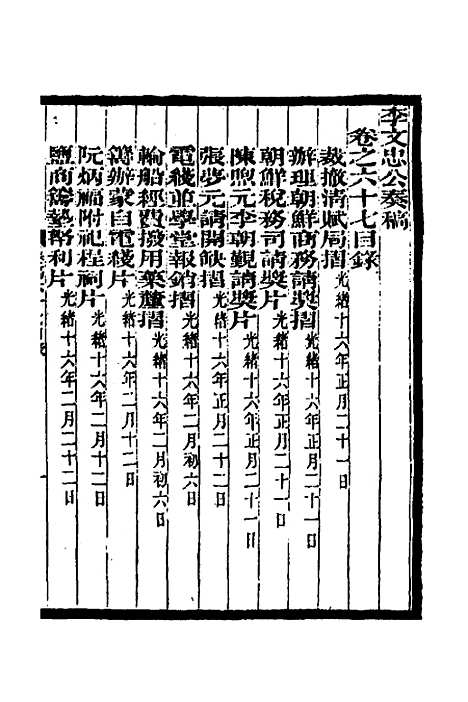 李文忠公奏稿
卷之六十七目錄
裁撤清賦局摺光緒十六年正月二十一日
辦理朝鮮商務請獎摺光緒十六年正月二十一日
朝鮮稅務司請獎片光緒十六年正月二十一日
陳煦元李朝覲請獎片光緒十六年正月二十一日
張夢元請開缺摺光緒十六年二月初二日
電線並學堂報銷摺光緒十六年二月初六日
輪船經費撥用藥釐摺光緒十六年二月初六日
籌辦蒙自電線片光緒十六年二月十二日
阮炳福附祀程祠片光緒十六年二月十二日
鹽商 利片光緒十六年二月二十二日